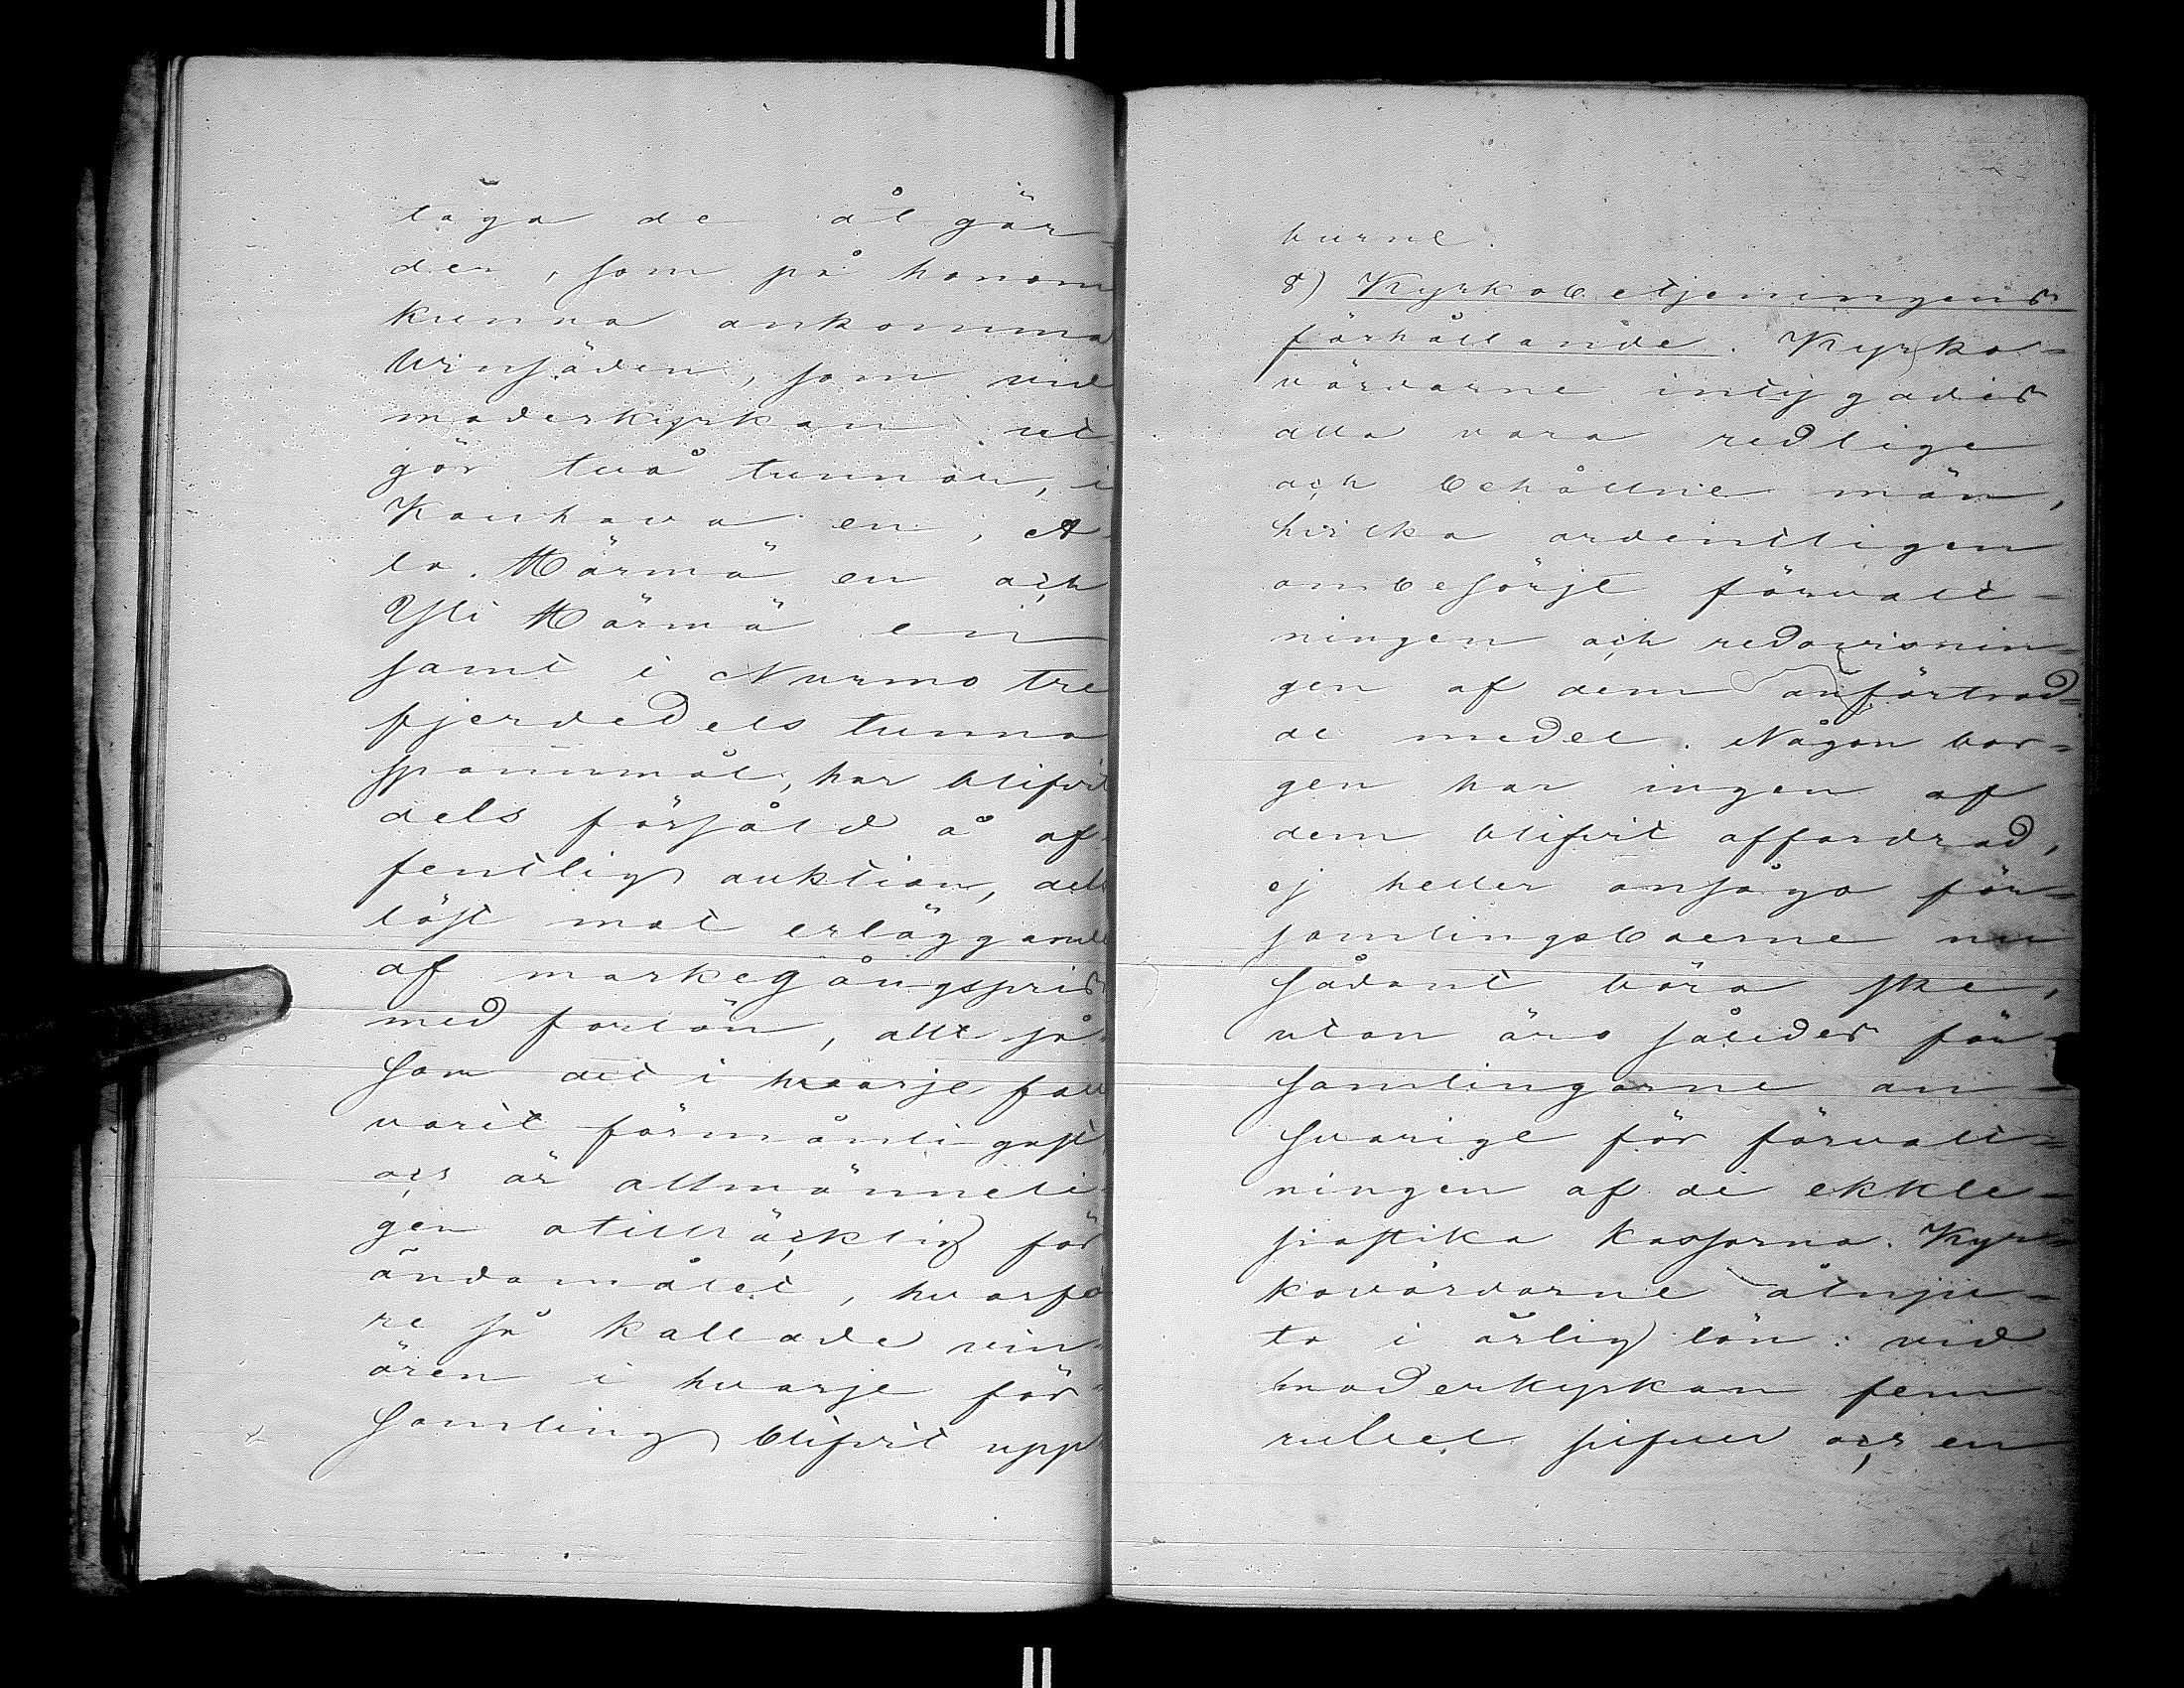 taga de åtgär-
der, som på honom
kunna ankomma
Vinsäden, som vid
moderkyrkan ut-
gör två tunnor, i
Kauhava en, A-
la Härmä en och
Yli Härmä en
samt i Nurmo tre
fjerdedels tunna
spannmål, har blifvit
dels försåld å of-
fentlig auktion, dels
löst mot erläggande
af markegångspris
med forlön, allt så-
som det i hvarje fall
varit förmånligast,
och är allmänneli-
gen otillräcklig för
ändamålet, hvarfö-
re så kallade vin-
ören i hvarje för-
samling blifvit upp-
burne.
8) Kyrkobetjeningens
förhållande. Kyrko-
värdarne intygades
alla vara redlige
och behållne män,
hvilka ordentligen
ombesörjt förvalt-
ningen och redovisnin-
gen af dem anförtrod-
de medel. Någon bor-
gen har ingen af
dem blifvit affordrad,
ej heller ansågo för-
samlingsboerne nu
sådant böra ske,
utan äro således för-
samlingarne an-
svarige för förvalt-
ningen af de ekkle-
siastika kassorna. Kyr-
kovärdarne åtnju-
ta i årlig lön: vid
moderkyrkan fem
rubel silfver och en